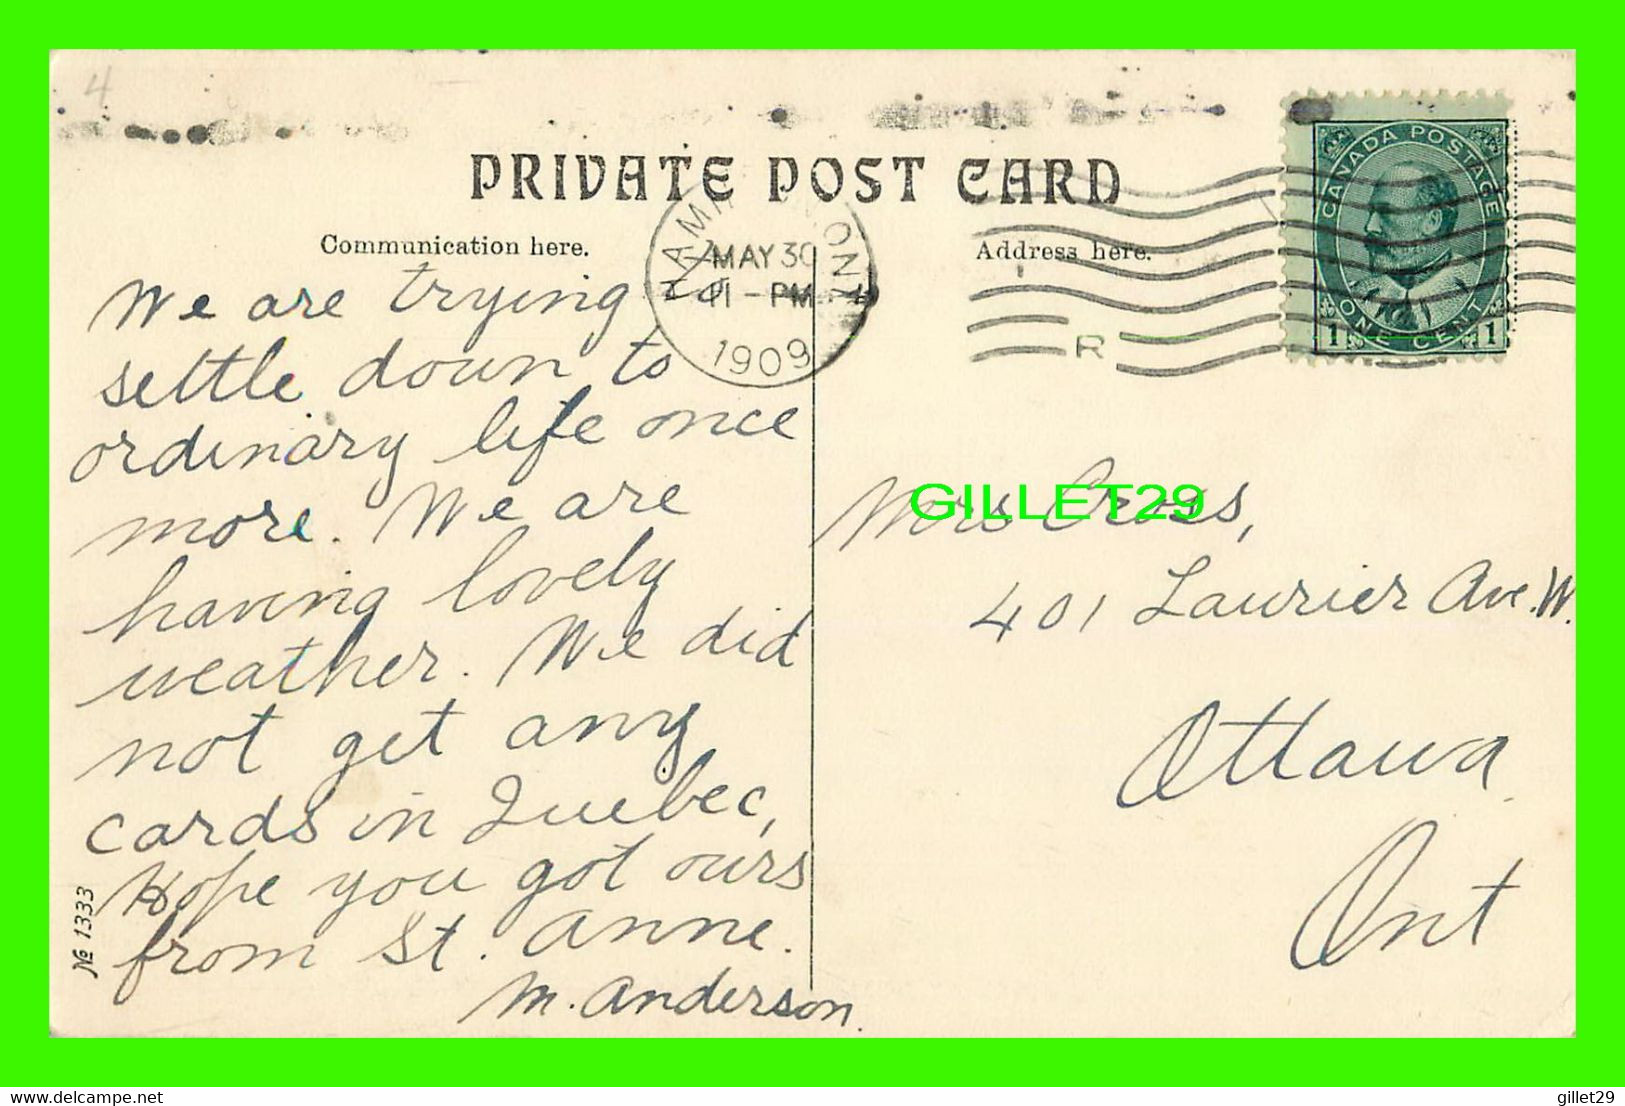 4
PRIVATE POST CARD
Communication here.
Address here.
MAY 30
11 - PM
1909
ONT
R
CANADA POSTAGE
1 ONE CENT 1
We are trying to
settle down to
ordinary life once
more. We are
having lovely
weather. We did
not get any
cards in Quebec,
Hope you got ours
from St. Anne.
M. Anderson.
Mrs Cross,
401 Laurier Ave. W.
Ottawa
Ont
GILLET29
№ 1333
delcampe.net
gillet29